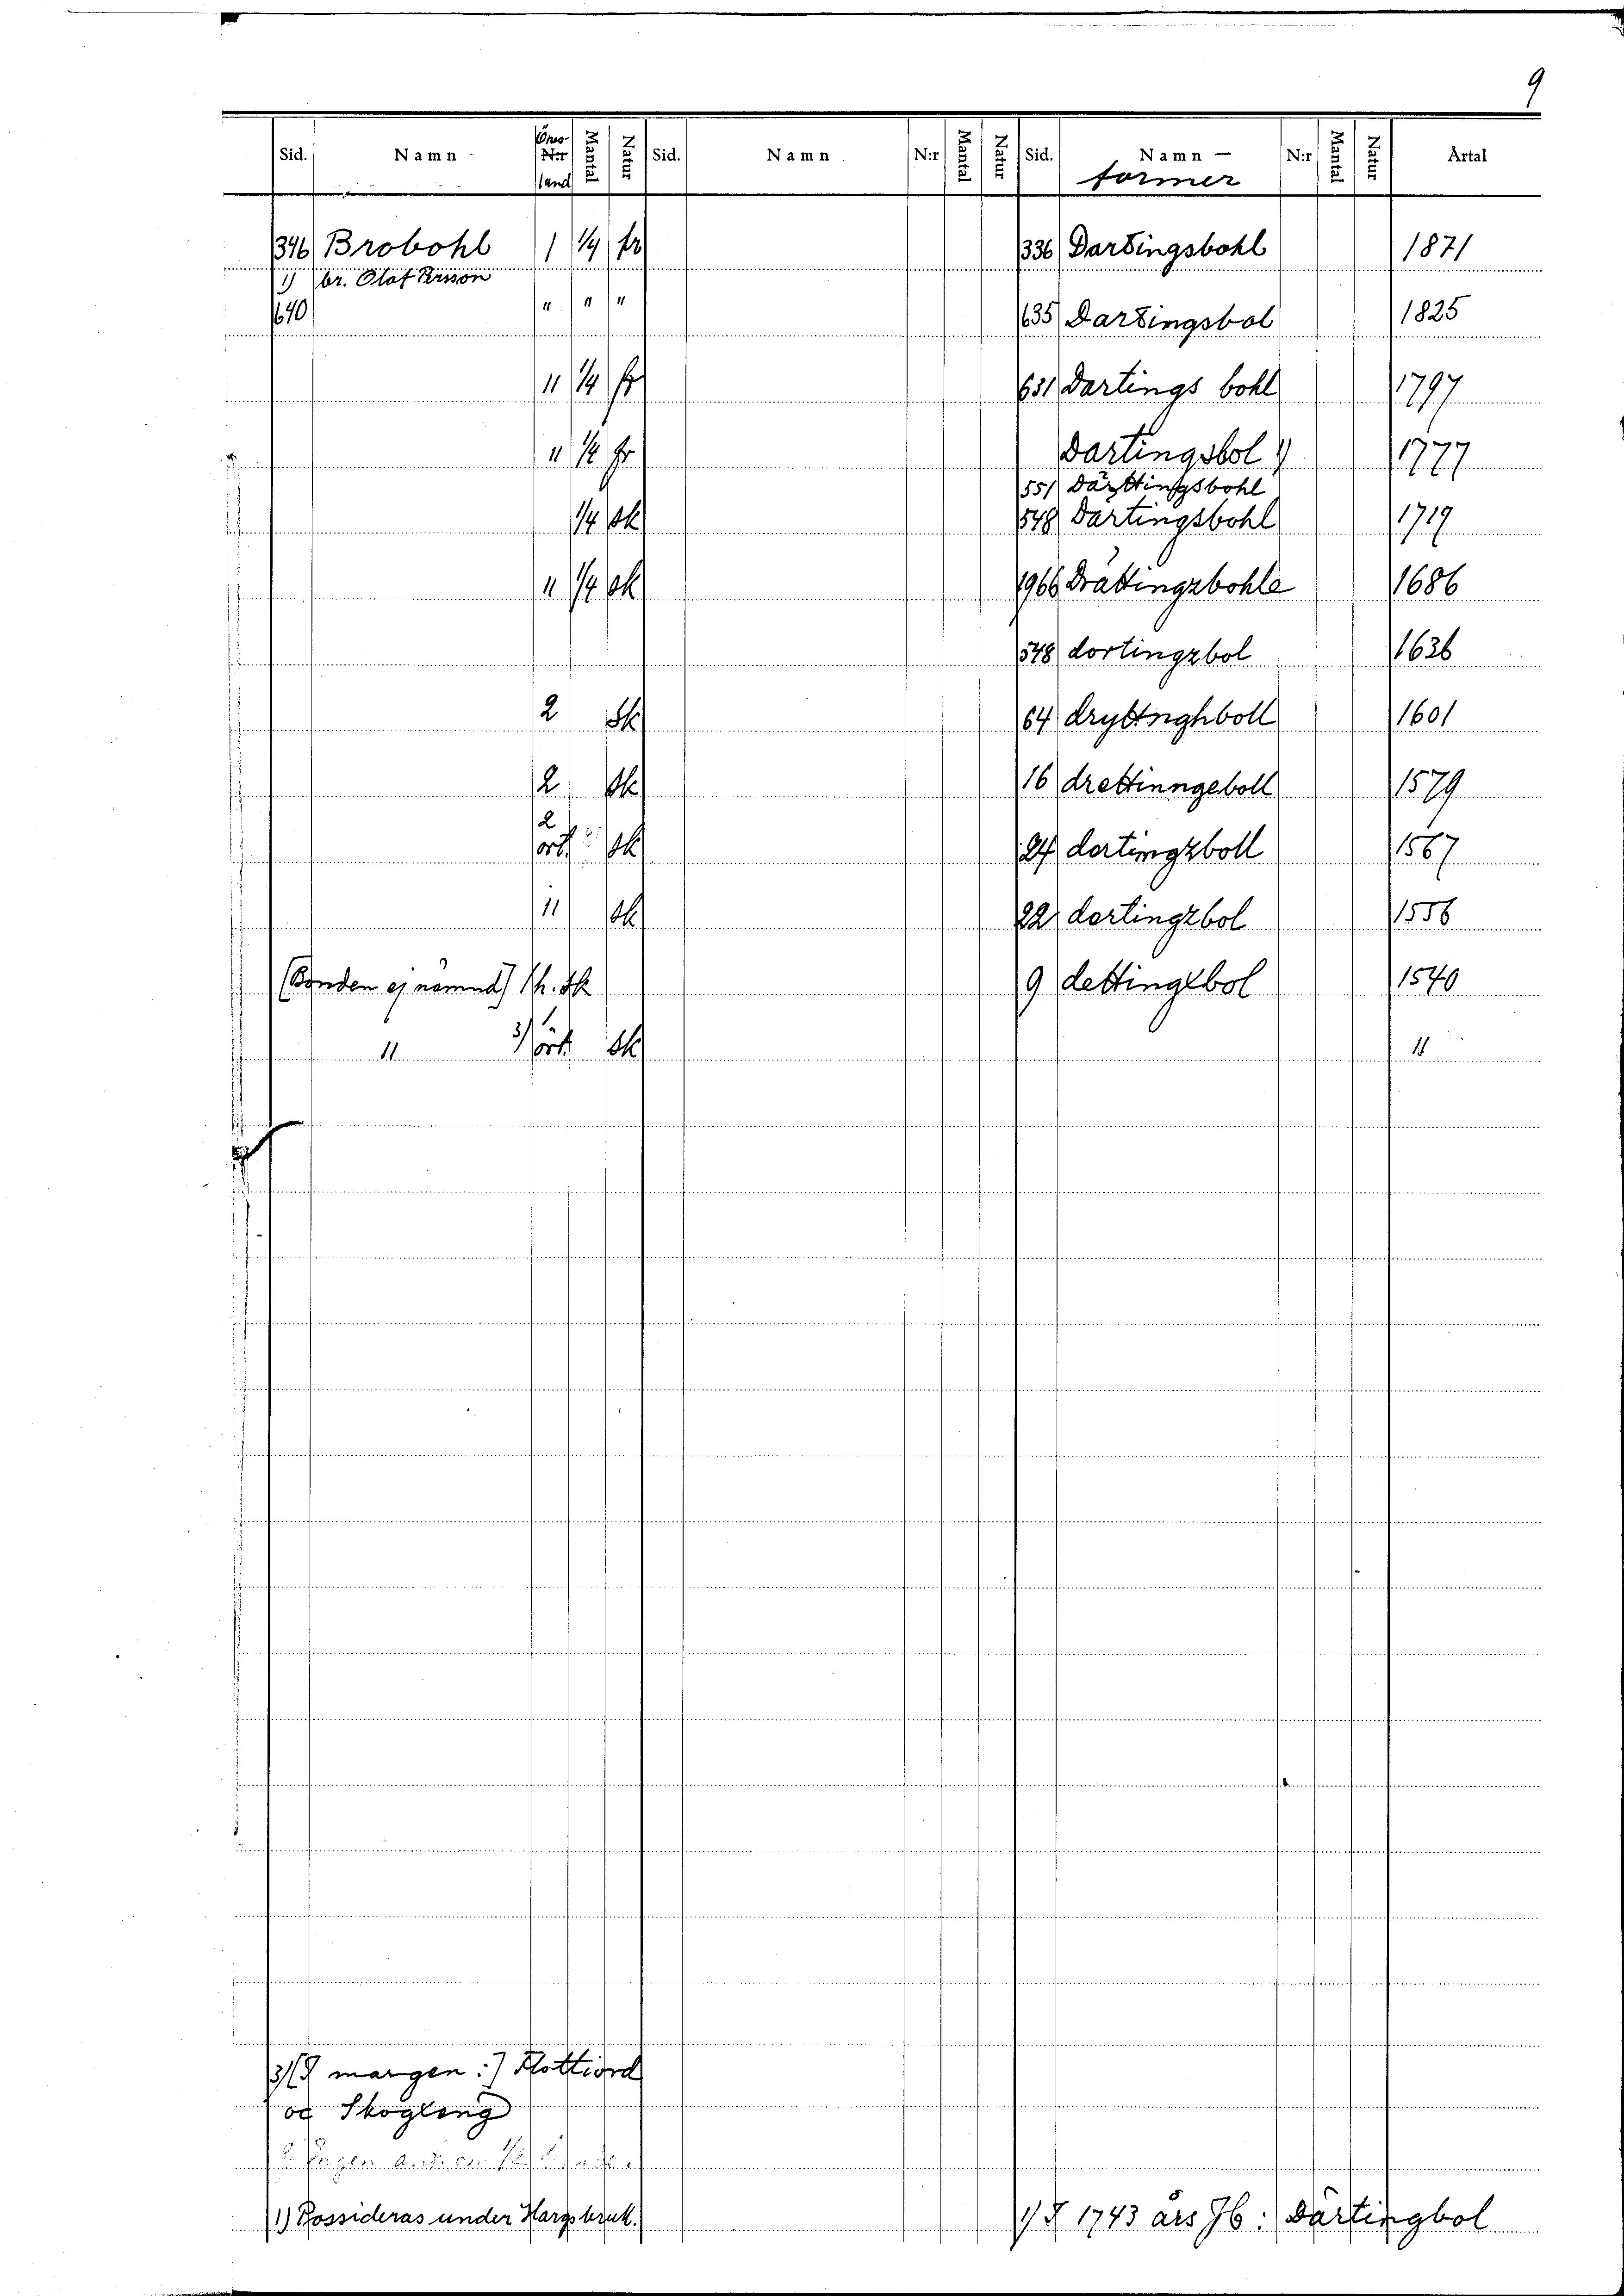 9
Sid. Namn Öres- N:r land Mantal Natur Sid. Namn N:r Mantal Natur Sid. Namn — former N:r Mantal Natur Årtal
346 Brobohl 1 1/4 fr 336 Dartingsbohl 1871
1) br. Olof Persson
640 " " " 635 Dartingsbol 1825
" 1/4 fr 631 Dartings bohl 1797
" 1/4 fr Dartingsbol 1) 1777
551 Därttingsbohl
1/4 sk 548 Dartingsbohl 1719
" 1/4 sk 1966 Drättingzbohle 1686
548 dortingzbol 1636
2 Sk 64 dryttnghboll 1601
2 Sk 16 drettinngeboll 1579
2 ört. sk 24 dertingzboll 1567
" sk 22 dertingzbol 1556
(Bonden ej nämnd) 1 h. sk 9 dettingxbol 1540
" 3) 1 ört. sk "
3) [I margen:] Flottiord
oc Skogleng
1) Possideras under Hargs bruk. 1) I 1743 års Jb: Därtingbol